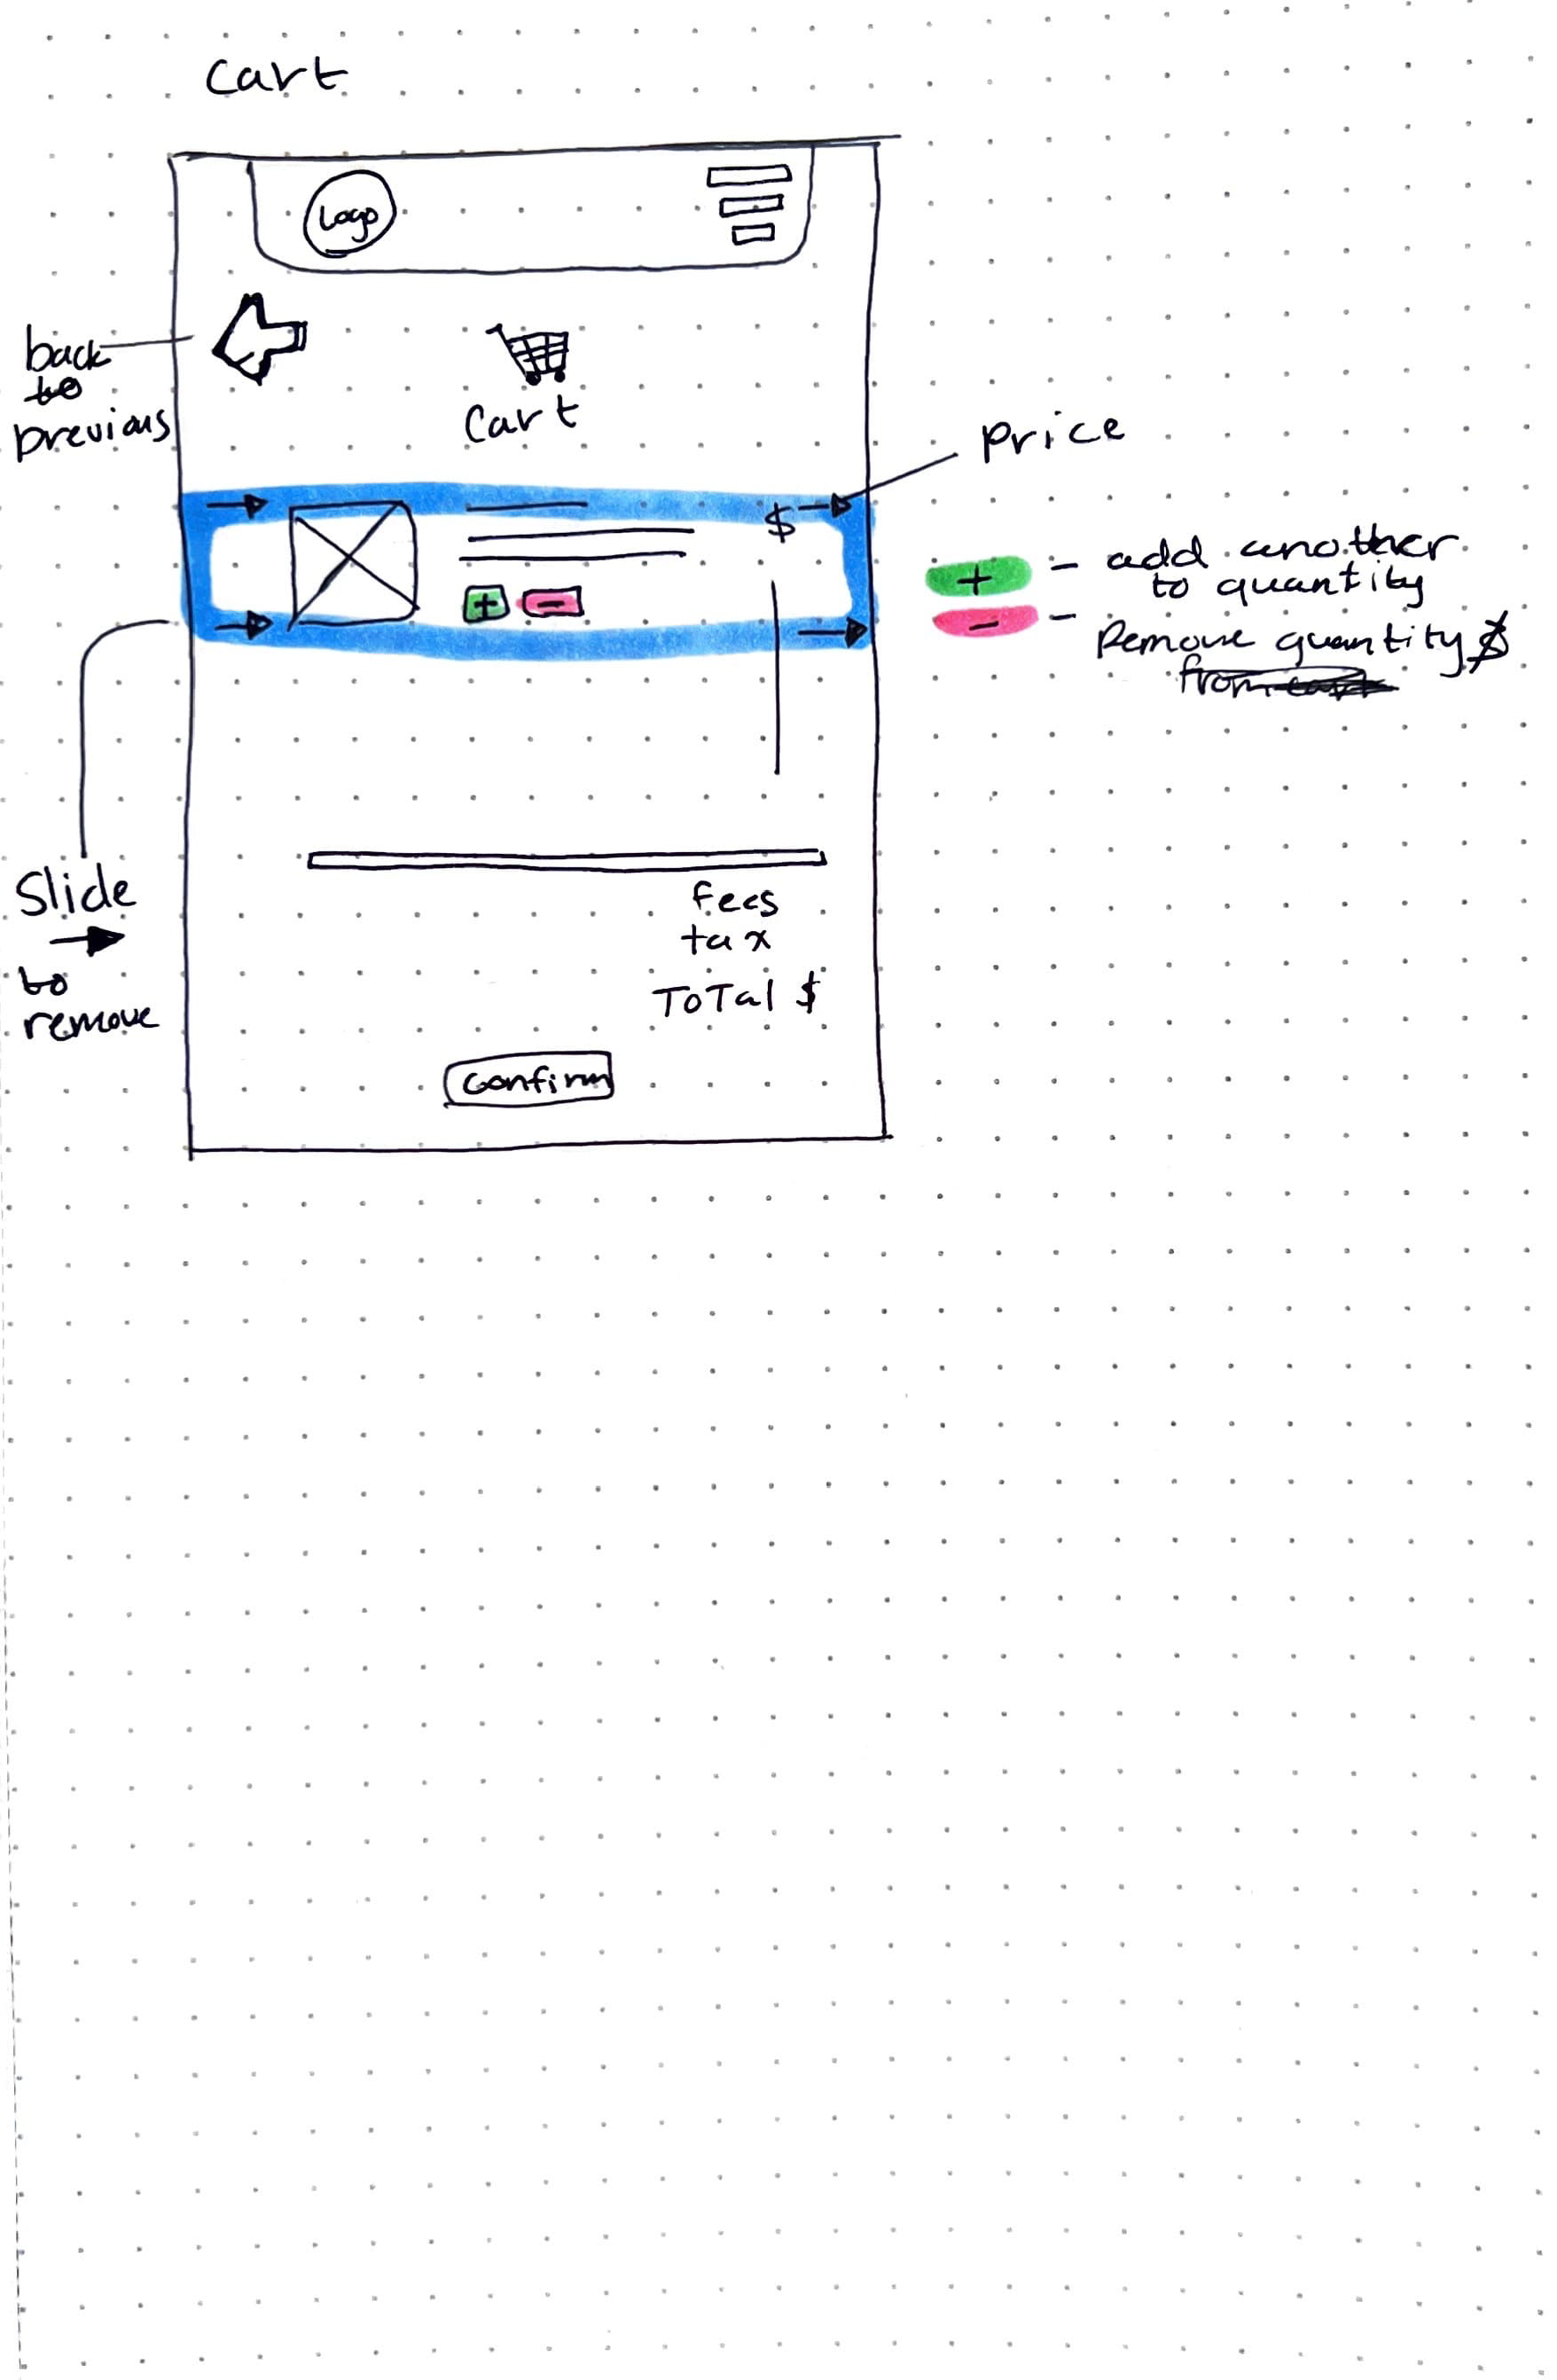 Cart
Logo
back
to
previous
Cart
Price
$
+ -
+ - add another
to quantity
- - Remove quantity $
from
Slide
to
remove
fees
tax
ToTal $
Confirm